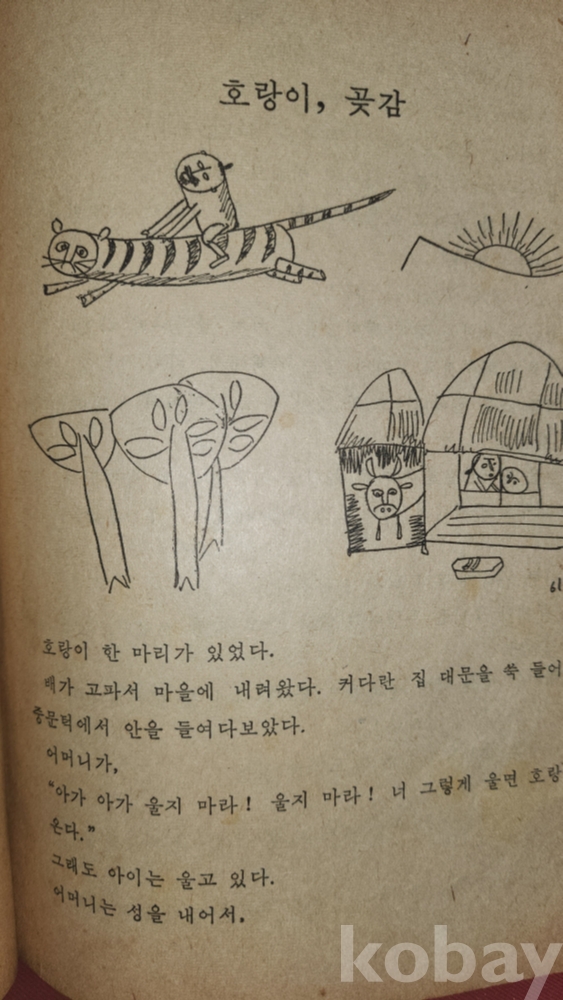 호랑이, 곶감
호랑이 한 마리가 있었다.
배가 고파서 마을에 내려왔다. 커다란 집 대문을 쑥 들어
중문턱에서 안을 들여다보았다.
어머니가,
“아가 아가 울지 마라! 울지 마라! 너 그렇게 울면 호랑
온다.”
그래도 아이는 울고 있다.
어머니는 성을 내어서,
kobay